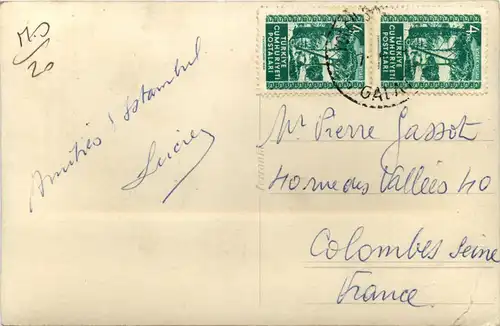 Amitiés d'Istambul
Lucien
4
TÜRKİYE
CUMHURİYETİ
POSTALARI
4
TÜRKİYE
CUMHURİYETİ
POSTALARI
GALA
Mr Pierre Gassot
40 rue des Vallées 40
Colombes Seine
France